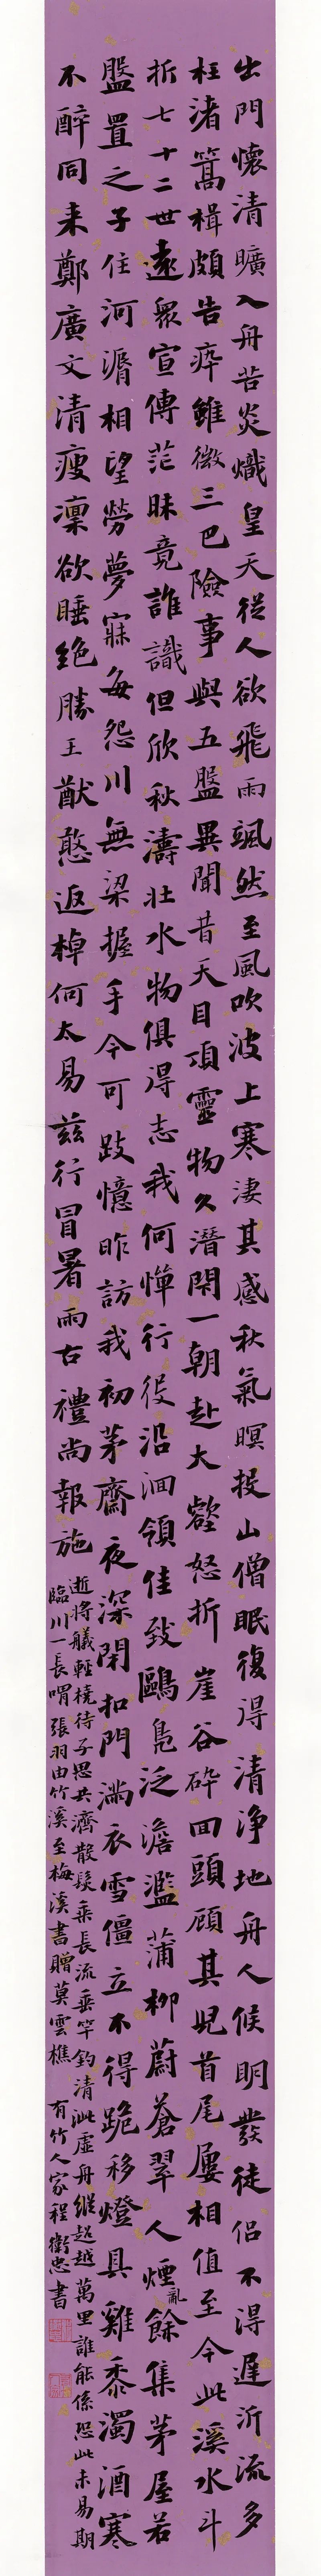 出門懷清曠入舟苦炎熾皇天從人欲飛雨颯然至風吹波上寒淒其感秋氣暝投山僧眠復得清淨地舟人候明發徒侶不得遲沂流多
枉渚篙楫頗告瘁雖微三巴險事與五盤異聞昔天目項靈物久潛閉一朝赴大壑怒折崖谷碎回頭顧其兒首尾屢相值至今此溪水斗
折七十二世遠衆宣傳茫昧竟誰識但欣秋濤壯水物俱得志我何憚行役沿洄領佳致鷗鳧泛澹灩蒲柳蔚蒼翠人煙亂餘集茅屋若
盤置之子住河濱相望勞夢寐每怨川無梁握手今可跂憶昨訪我初茅齋夜深閉扣門滿衣雪僵立不得跪移燈具雞黍濁酒寒
不醉同来鄭廣文清瘦凜欲睡絶勝王猷憨返棹何太易茲行冒暑雨古禮尚報施
逝將艤輕橈待子思共濟散髮乘長流垂竿釣清泚虛舟縱超越萬里誰能係恐此未易期
臨川一長喟張羽由竹溪至梅溪書贈莫雲樵 有竹人家程衛忠書